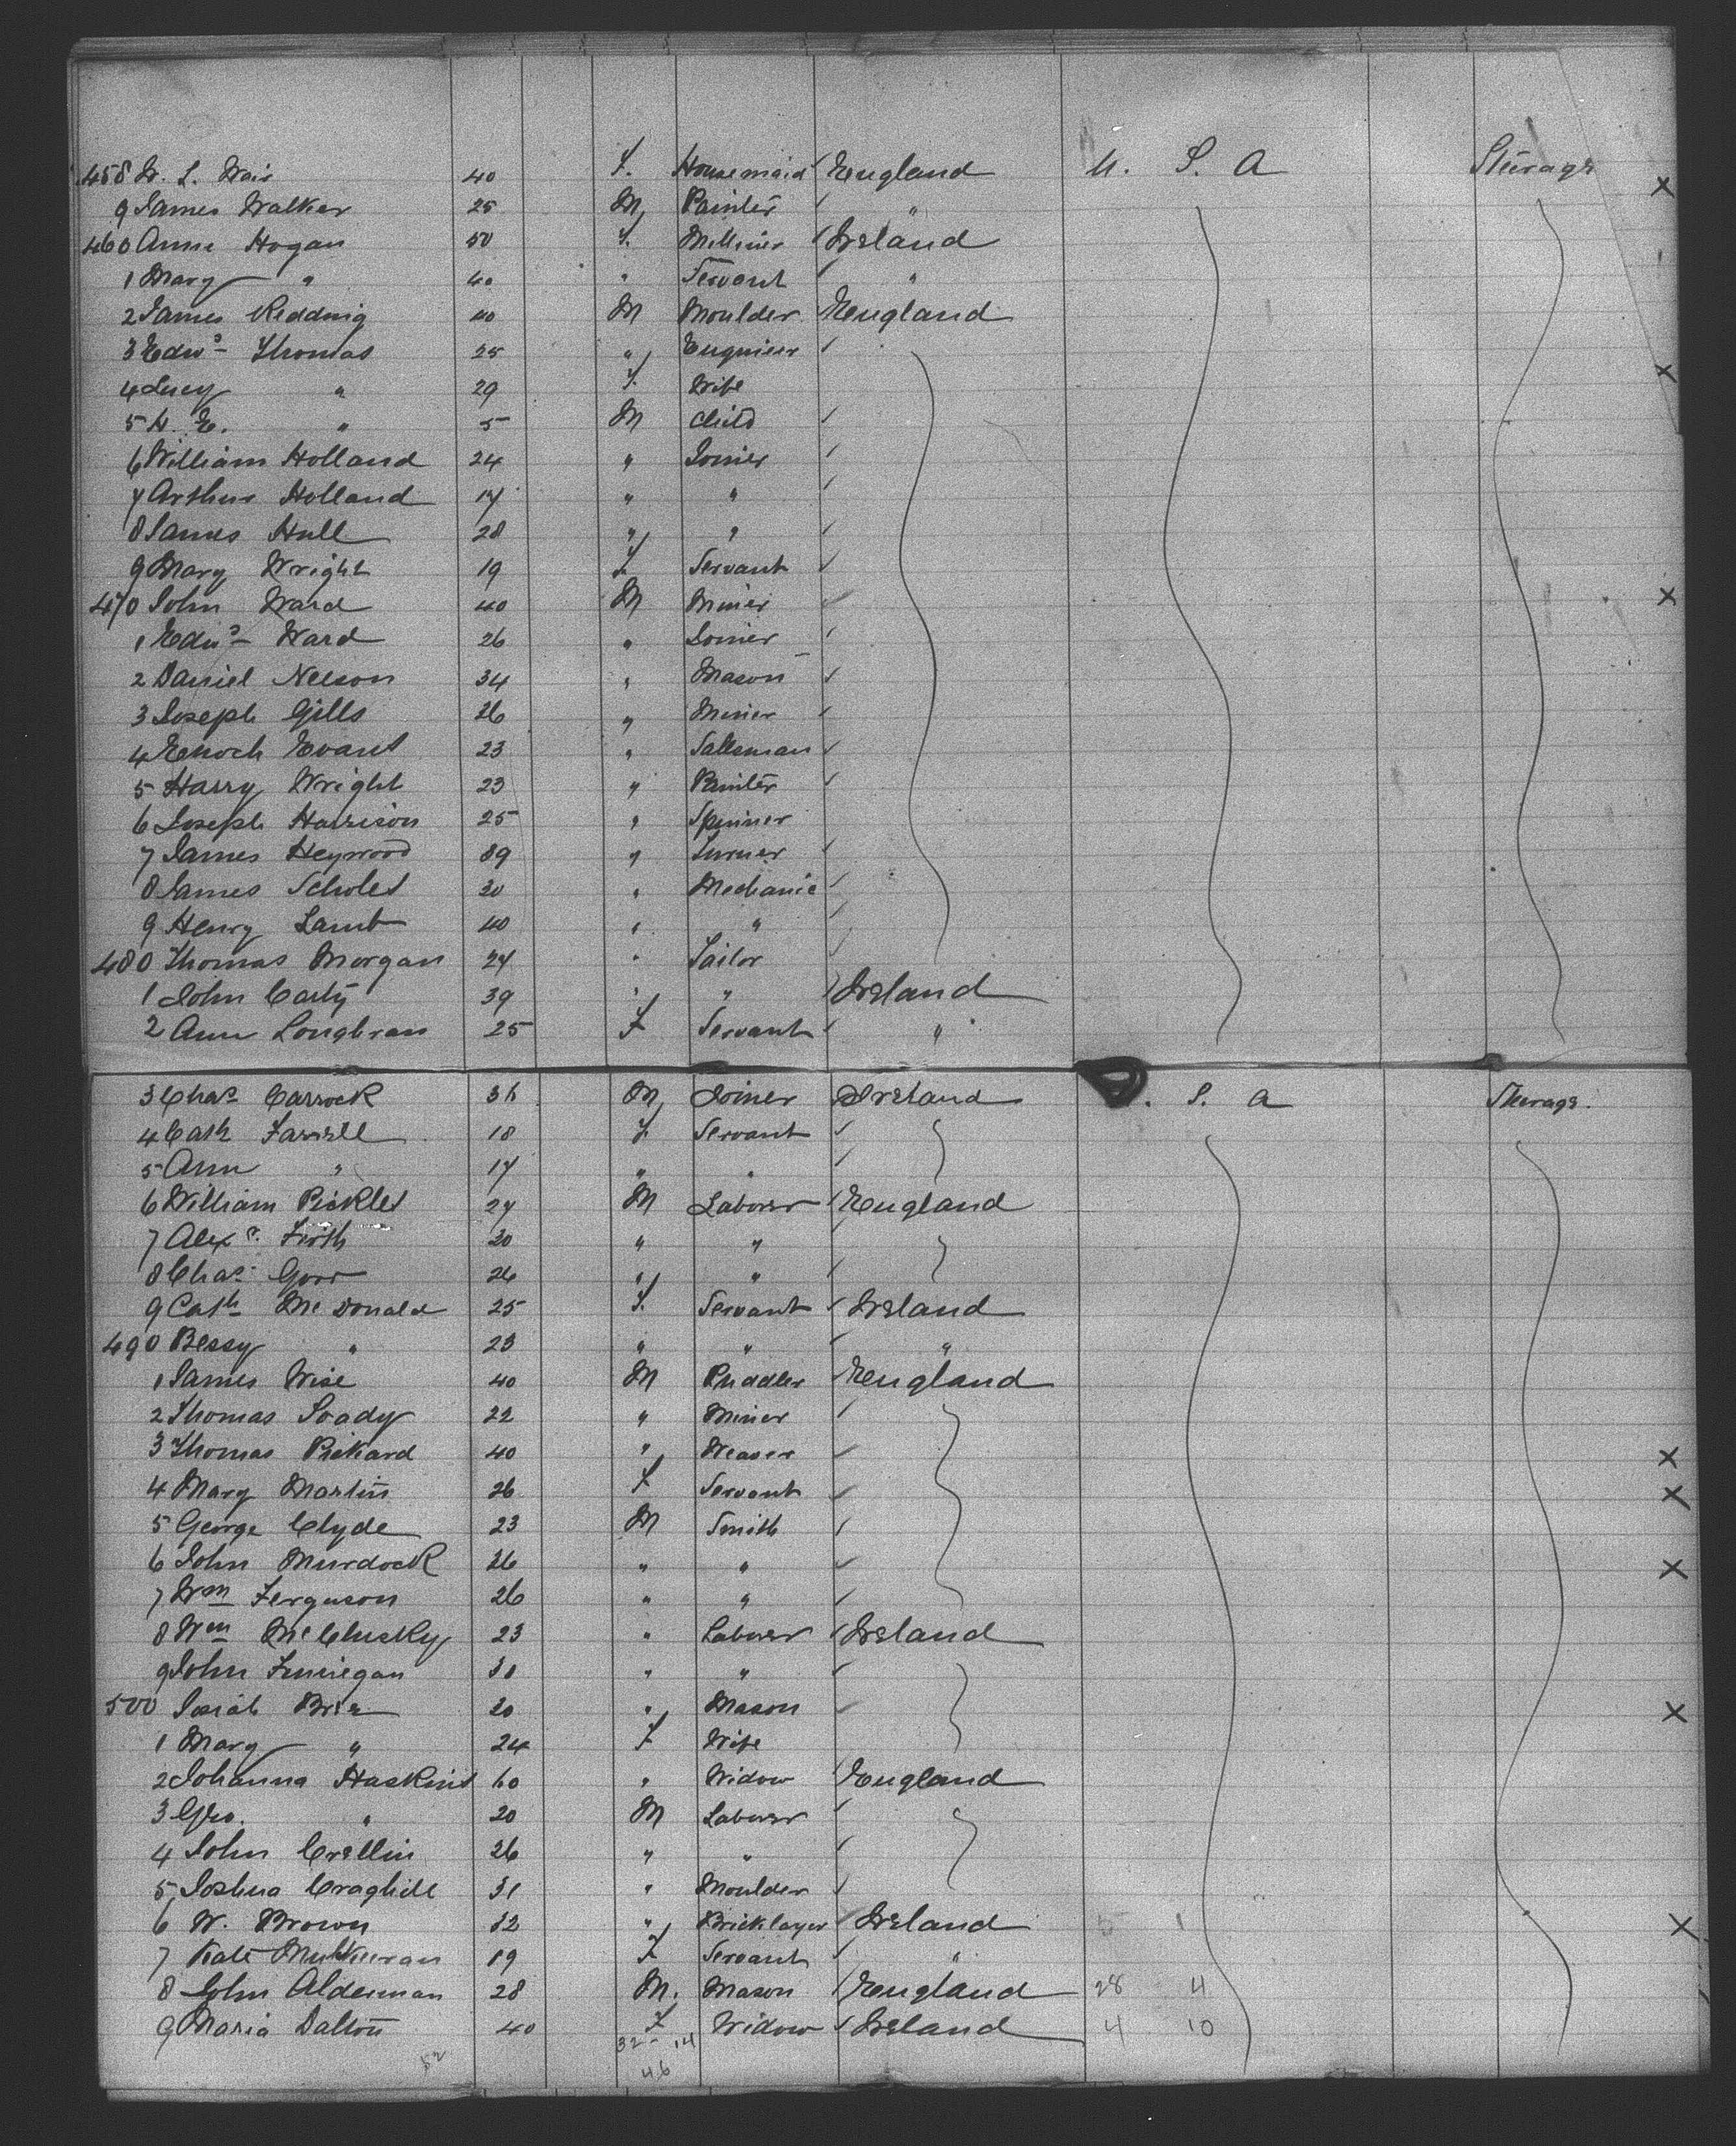 458 W. L. Weir 40 F. Housemaid England U. S. A Steerage X
9 James Walker 25 M Painter "
460 Anne Hogan 50 F. Milliner Ireland
1 Mary " 40 " Servant "
2 James Redding 40 M Moulder England
3 Edwd Thomas 25 " Engineer
4 Lucy " 29 F. Wife X
5 W. E. " 5 M Child
6 William Holland 24 " Joiner
7 Arthur Holland 17 " "
8 James Hull 28 " "
9 Mary Wright 19 F Servant
470 John Ward 40 M Miner X
1 Edwd Ward 26 " Joiner
2 Daniel Nelson 34 " Mason
3 Joseph Gills 26 " Miner
4 Enoch Evans 23 " Salesman
5 Harry Wright 23 " Painter
6 Joseph Harrison 25 " Spinner
7 James Heywood 39 " Turner
8 James Scholes 30 " Mechanic
9 Henry Lamb 40 " "
480 Thomas Morgan 27 " Tailor
1 John Carty 39 " " Ireland
2 Ann Loughran 25 F Servant "
3 Chas Carrock 36 M Joiner Ireland S. A Steerage.
4 Cath Farrell 18 F Servant
5 Ann " 17 " "
6 William Pickles 27 M Laborer England
7 Alexr. Firth 30 " "
8 Chas Goor 26 " "
9 Cath McDonald 25 F. Servant Ireland
490 Bessy " 23 " " "
1 James Wise 40 M Puddler England
2 Thomas Soady 22 " Miner
3 Thomas Pickard 40 " Weaver X
4 Mary Martin 26 F Servant X
5 George Clyde 23 M Smith
6 John Murdock 26 " " X
7 Wm Ferguson 26 " "
8 Wm McClusky 23 " Laborer Ireland
9 John Finnegan 30 " "
500 Josiah 20 " Mason X
1 Mary " 24 F Wife
2 Johanna Haskins 60 " Widow England
3 Geo. " 20 M Laborer
4 John Crellin 26 " "
5 Joshua Craghill 31 " Moulder
6 W. Brown 32 " Bricklayer Ireland 5 1 X
7 Kate Mulkieran 19 F Servant "
8 John Alderman 28 M. Mason England 28 4
9 Maria Dalton 40 F Widow Ireland 4 10
32 - 14
52 46